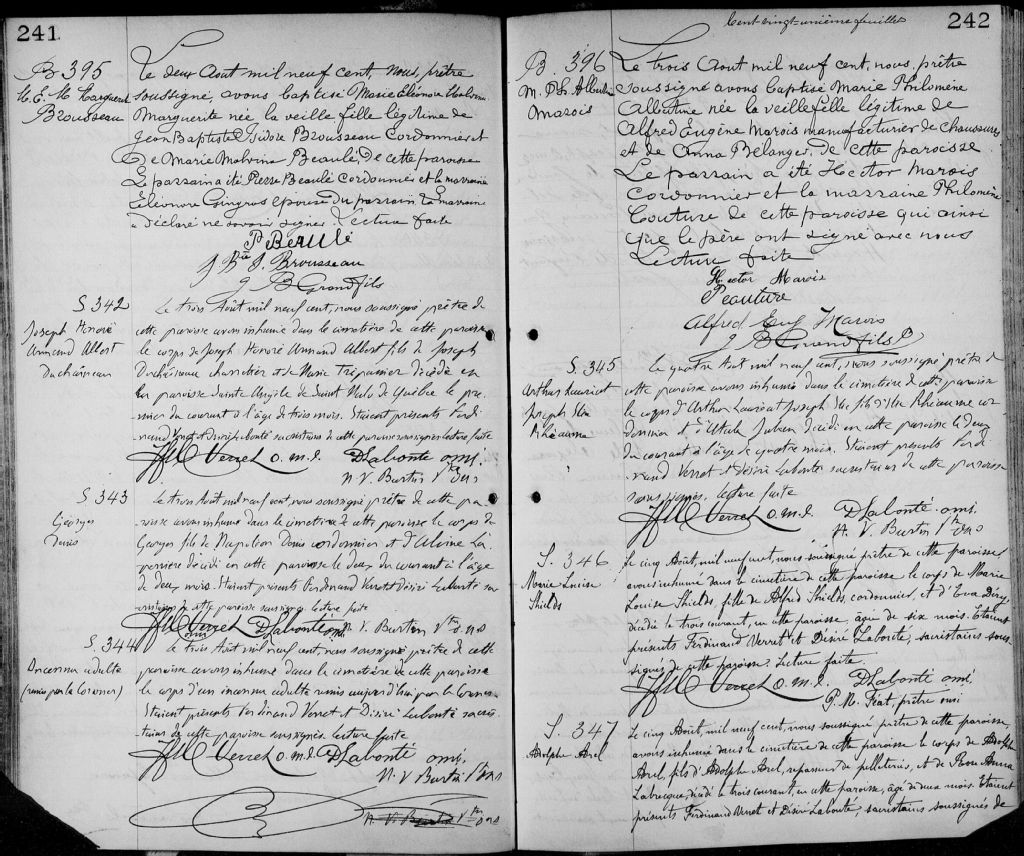 241
B 395
M. E. M. Marguerite
Brousseau
Le deux Aout mil neuf cent, nous, prêtre
soussigné, avons baptisé Marie Eléonore Malvina
Marguerite née la veille fille légitime de
Jean Baptiste Isidore Brousseau Cordonnier et
De Marie Malvina Beaulé, De cette paroisse
Le parrain a été Pierre Beaulé Cordonnier et la marraine
Eléonore Gingras épouse du parrain La marraine
a déclaré ne savoir signer. Lecture faite
P Beaulé
J. Bte I. Brousseau
J B Grandfils
S. 342
Joseph Honoré
Armand Albert
Duchesneau
Le trois Août mil neuf cent, nous soussigné prêtre de
cette paroisse avons inhumé dans le cimetière de cette paroisse
le corps de Joseph Honoré Armand Albert fils de Joseph
Duchesneau charretier et de Marie Trépanier décédé en
la paroisse Sainte Angèle de Saint Malo de Québec le pre-
mier du courant à l'âge de trois mois. Etaient présents Ferdi-
nand Verret et Désiré Labonté sacristains de cette paroisse soussignés lecture faite
Verret o.m.i. D Labonté omi.
N. V. Burtin Ptre o m i
S. 343
Georges
Denis
Le trois Août mil neuf cent, nous soussigné prêtre de cette pa-
roisse avons inhumé dans le cimetière de cette paroisse le corps de
Georges fils de Napoléon Denis cordonnier et d'Alvine La-
perrière décédé en cette paroisse le deux du courant à l'âge
de deux mois. Etaient présents Ferdinand Verret et Désiré Labonté sa-
cristains de cette paroisse soussignés lecture faite
Verret omi D Labonté omi N. V. Burtin Ptre o m i
S. 344
Inconnu adulte
(remis par le Coroner)
Le trois Août mil neuf cent, nous soussigné prêtre de cette
paroisse avons inhumé dans le cimetière de cette paroisse
le corps d'un inconnu adulte remis aujourd'hui par le Coroner.
Etaient présents Ferdinand Verret et Désiré Labonté sacris-
tains de cette paroisse soussignés lecture faite
Verret o.m.i D Labonté omi.
N. V Burtin Ptre o m i
N. V. Burtin Ptre o m i
Cent vingt-unième feuillet
242
B. 396
M. Ph. Albertine
Marois
Le trois Aout mil neuf cent, nous, prêtre
soussigné avons baptisé Marie Philomène
Albertine née la veille fille légitime de
Alfred Eugène Marois manufacturier de chaussures
et de Anna Bélanger, De cette paroisse
Le parrain a été Hector Marois
Cordonnier et la marraine Philomène
Couture de cette paroisse qui ainsi
que le père ont signé avec nous
Lecture faite
Hector Marois
P couture
Alfred Eug Marois
J B Grandfils
S. 345
Arthur Lauréat
Joseph Elie
Rhéaume
Le quatre Août mil neuf cent, nous soussigné prêtre de
cette paroisse avons inhumé dans le cimetière de cette paroisse
le corps d'Arthur Lauréat Joseph Elie fils d'Elie Rhéaume cor-
donnier et d'Utale décédé en cette paroisse le deux
du courant à l'âge de quatre mois. Etaient présents Ferdi-
nand Verret et Désiré Labonté sacristains de cette paroisse
soussignés. lecture faite
Verret o.m.i D Labonté omi.
N. V. Burtin Ptre o m i
S. 346
Marie-Louise
Shields
Le cinq Août, mil neuf cent, nous soussigné prêtre de cette paroisse
avons inhumé dans le cimetière de cette paroisse le corps de Marie
Louise Shields, fille de Alfred Shields, cordonnier, et d'Eva Déry,
décédé le trois courant, en cette paroisse, âgée de six mois. Etaient
présents Ferdinand Verret et Désiré Labonté, sacristains sous-
signés de cette paroisse. Lecture faite.
Verret o.m.i. D Labonté omi
P. M. Fiat, prêtre omi
S. 347
Adolphe Arel
Le cinq Août, mil neuf cent, nous soussigné prêtre de cette paroisse,
avons inhumé dans le cimetière de cette paroisse le corps de Adolphe
Arel, fils d'Adolphe Arel, repasseur de pelleteries, et de Rose Anna
Labrecque, décédé le trois courant, en cette paroisse, âgé de deux mois. Etaient
présents Ferdinand Verret et Désiré Labonté, sacristains soussignés de